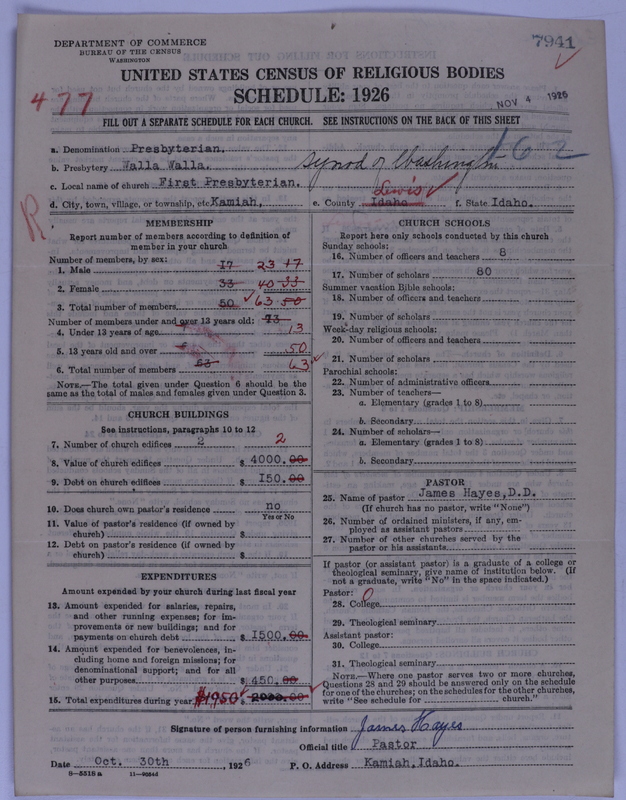 DEPARTMENT OF COMMERCE
BUREAU OF THE CENSUS
WASHINGTON
7941
UNITED STATES CENSUS OF RELIGIOUS BODIES
SCHEDULE: 1926
477
NOV 4 1926
FILL OUT A SEPARATE SCHEDULE FOR EACH CHURCH. SEE INSTRUCTIONS ON THE BACK OF THIS SHEET
a. Denomination Presbyterian.
b. Presbytery Walla Walla. Synod of Washington 162
c. Local name of church First Presbyterian.
d. City, town, village, or township, etc Kamiah, e. County Idaho Lewis f. State Idaho.
R
MEMBERSHIP
Report number of members according to definition of
member in your church
Number of members, by sex:
1. Male 17 23 17
2. Female 33 40 33
3. Total number of members 50 63 50
Number of members under and over 13 years old: 73
4. Under 13 years of age 13
5. 13 years old and over 50
6. Total number of members 63 63
NOTE.—The total given under Question 6 should be the
same as the total of males and females given under Question 3.
CHURCH BUILDINGS
See instructions, paragraphs 10 to 12
7. Number of church edifices 2 2
8. Value of church edifices $ 4000.00
9. Debt on church edifices $ 150.00
10. Does church own pastor's residence no
Yes or No
11. Value of pastor's residence (if owned by
church) $
12. Debt on pastor's residence (if owned by
church) $
EXPENDITURES
Amount expended by your church during last fiscal year
13. Amount expended for salaries, repairs,
and other running expenses; for im-
provements or new buildings; and for
payments on church debt $ 1500.00
14. Amount expended for benevolences, in-
cluding home and foreign missions; for
denominational support; and for all
other purposes $ 450.00
15. Total expenditures during year $1950 $ 2000.00
CHURCH SCHOOLS
Report here only schools conducted by this church
Sunday schools:
16. Number of officers and teachers 8
17. Number of scholars 80
Summer vacation Bible schools:
18. Number of officers and teachers
19. Number of scholars
Week-day religious schools:
20. Number of officers and teachers
21. Number of scholars
Parochial schools:
22. Number of administrative officers
23. Number of teachers—
a. Elementary (grades 1 to 8)
b. Secondary
24. Number of scholars—
a. Elementary (grades 1 to 8)
b. Secondary
PASTOR
25. Name of pastor James Hayes, D.D.
(If church has no pastor, write "None")
26. Number of ordained ministers, if any, em-
ployed as assistant pastors
27. Number of other churches served by the
pastor or his assistants
If pastor (or assistant pastor) is a graduate of a college or
theological seminary, give name of institution below. (If
not a graduate, write "No" in the space indicated.)
Pastor: 0
28. College
29. Theological seminary
Assistant pastor:
30. College
31. Theological seminary
NOTE.—Where one pastor serves two or more churches,
Questions 28 and 29 should be answered only on the schedule
for one of the churches; on the schedules for the other churches,
write "See schedule for church."
Signature of person furnishing information James Hayes
Official title Pastor
Date Oct. 30th, 1926 P. O. Address Kamiah, Idaho.
8—5518 a